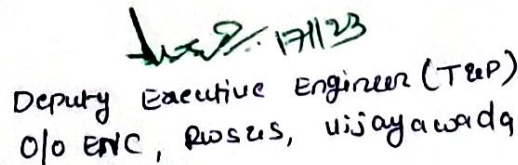 17/1/23
Deputy Executive Engineer (T&P)
O/o ENC, RWS&S, Vijayawada